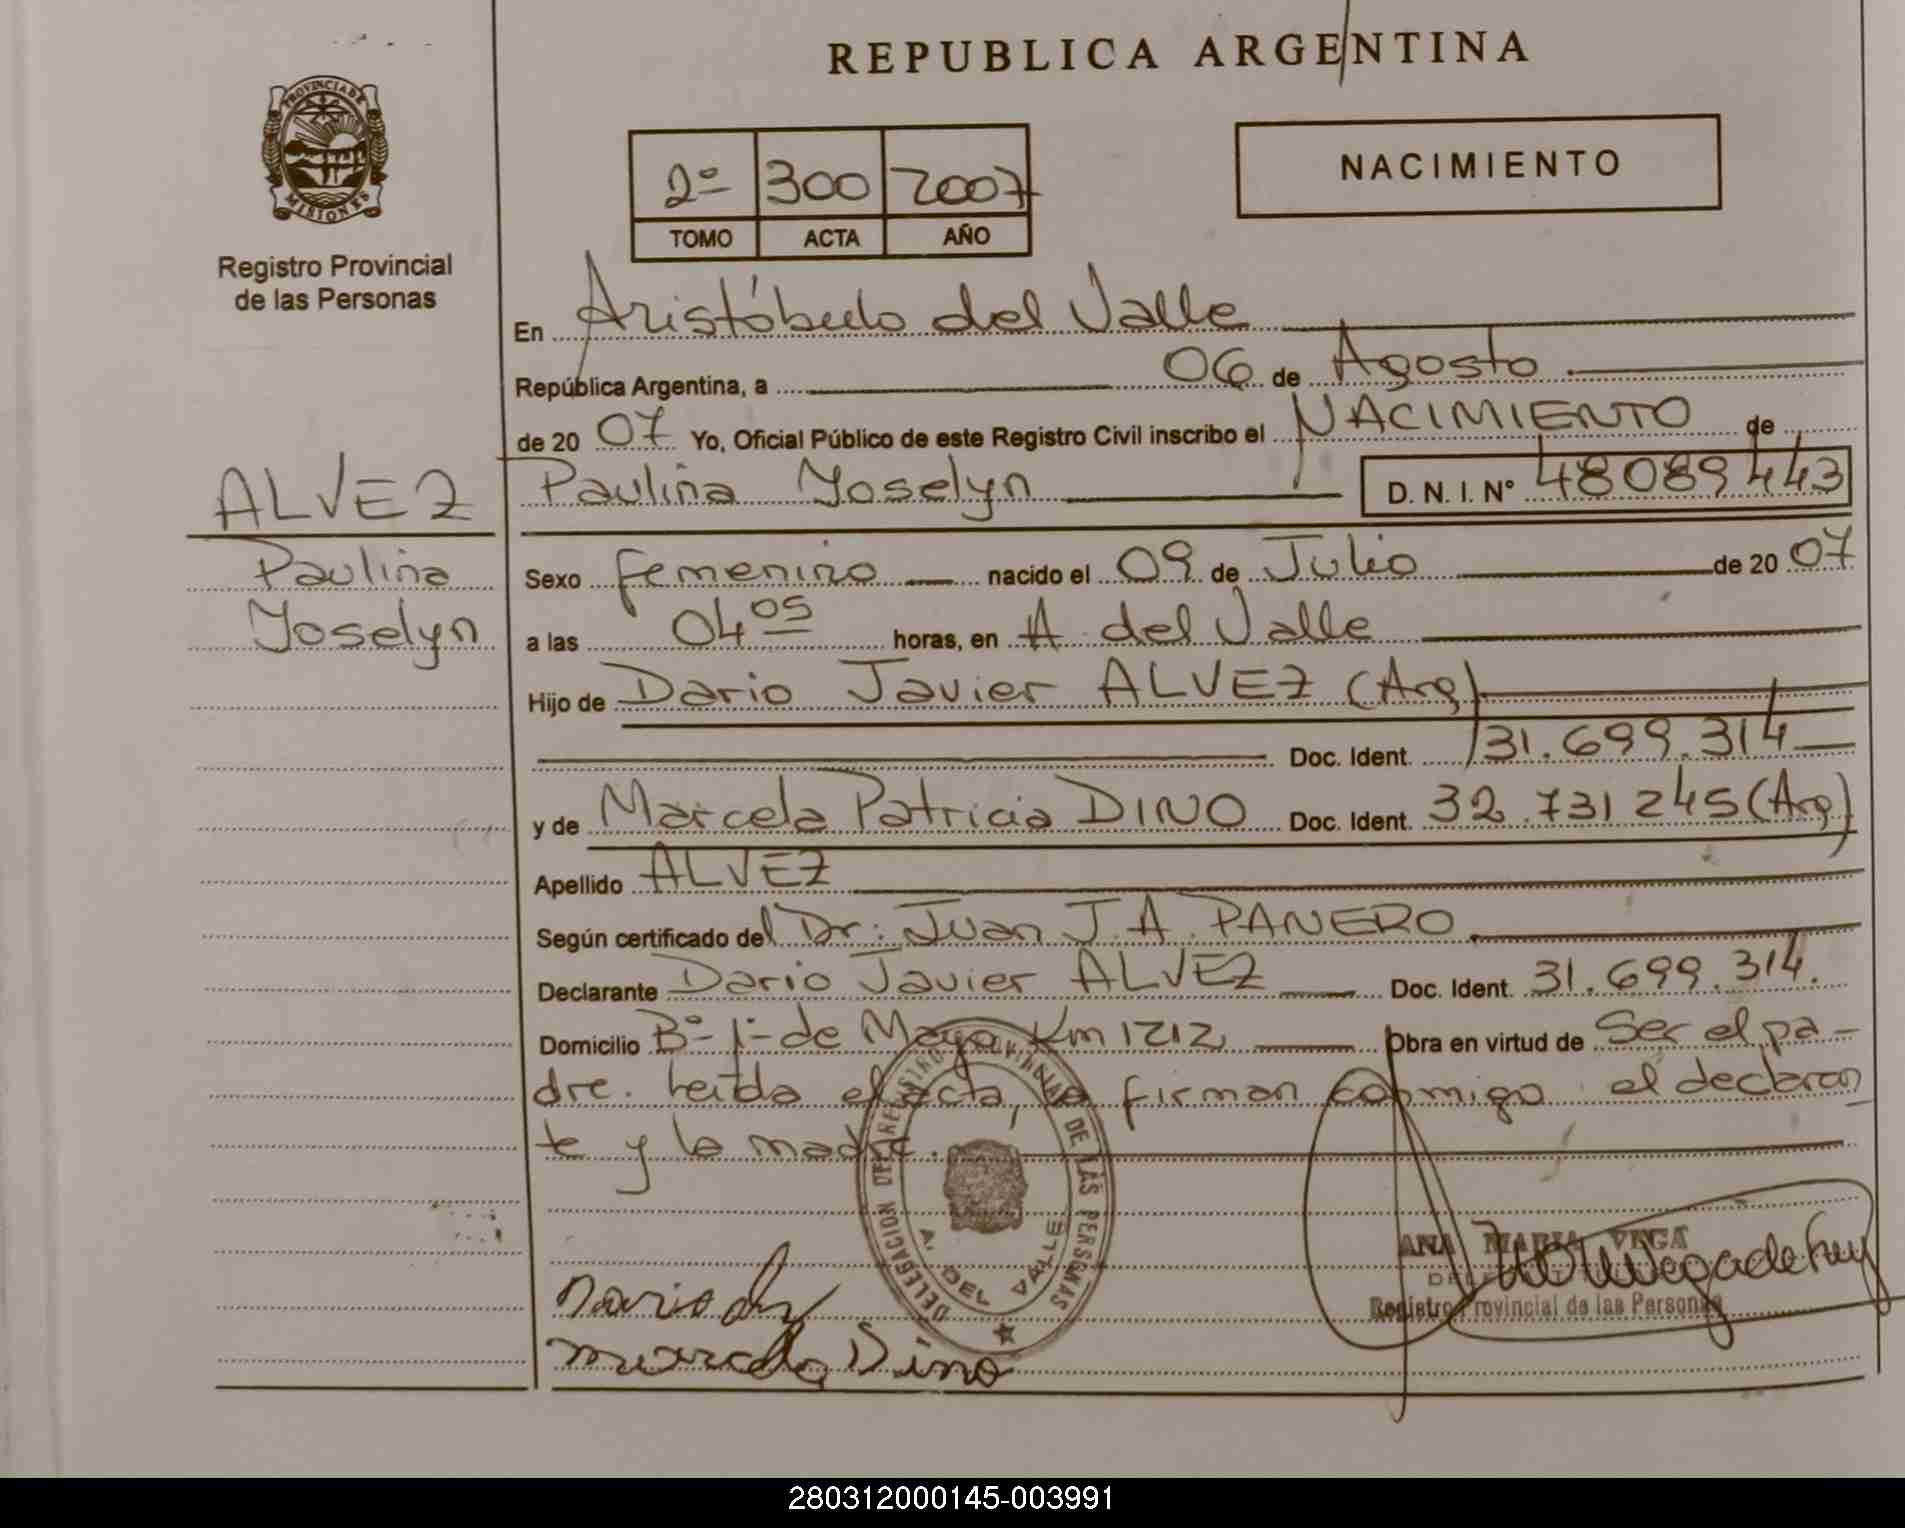 REPUBLICA ARGENTINA
PROVINCIA DE MISIONES
Registro Provincial
de las Personas
2º 300 2007
TOMO ACTA AÑO
NACIMIENTO
En Aristóbulo del Valle
República Argentina, a 06 de Agosto
de 2007 Yo, Oficial Público de este Registro Civil inscribo el NACIMIENTO de
Paulina Yoselyn D. N. I. Nº 48089443
ALVEZ
Paulina
Yoselyn
Sexo femenino nacido el 09 de Julio de 2007
a las 04 05 horas, en A. del Valle
Hijo de Dario Javier ALVEZ (Arg)
Doc. Ident. 31.699.314
y de Marcela Patricia DINO Doc. Ident. 32.731245 (Arg)
Apellido ALVEZ
Según certificado del Dr: Juan J.A. PANERO
Declarante Dario Javier ALVEZ Doc. Ident. 31.699.314.
Domicilio Bº 1º de Mayo Km 1212 Obra en virtud de Ser el pa-
dre. Leída el acta, la firman conmigo el declaran
te y la madre.
DELEGACION DEL REGISTRO PROVINCIAL DE LAS PERSONAS
A. DEL VALLE
ANA MARIA VEGA
Registro Provincial de las Personas
Dario
Marcela Dino
280312000145-003991